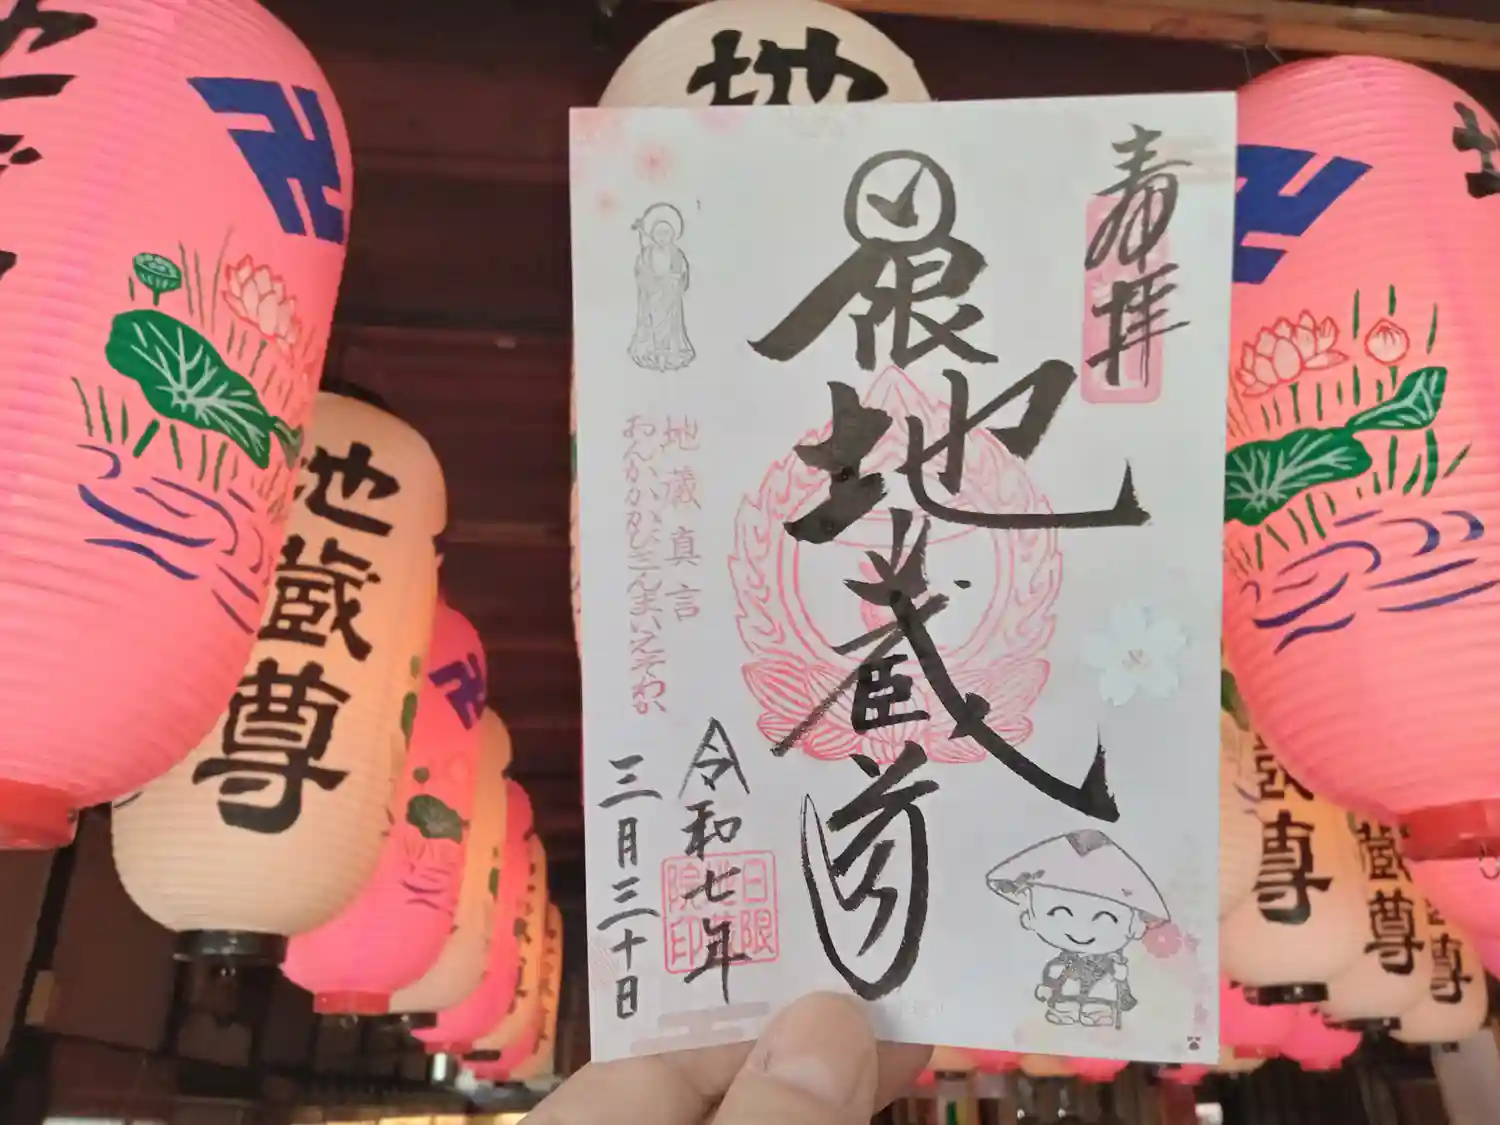 奉拝
日限地蔵尊
地蔵真言
おんかかかびさんまいえそわか
令和七年
三月三十日
日限
地蔵
院印
地蔵尊
地
卍
卍
卍
蔵尊
蔵尊
尊